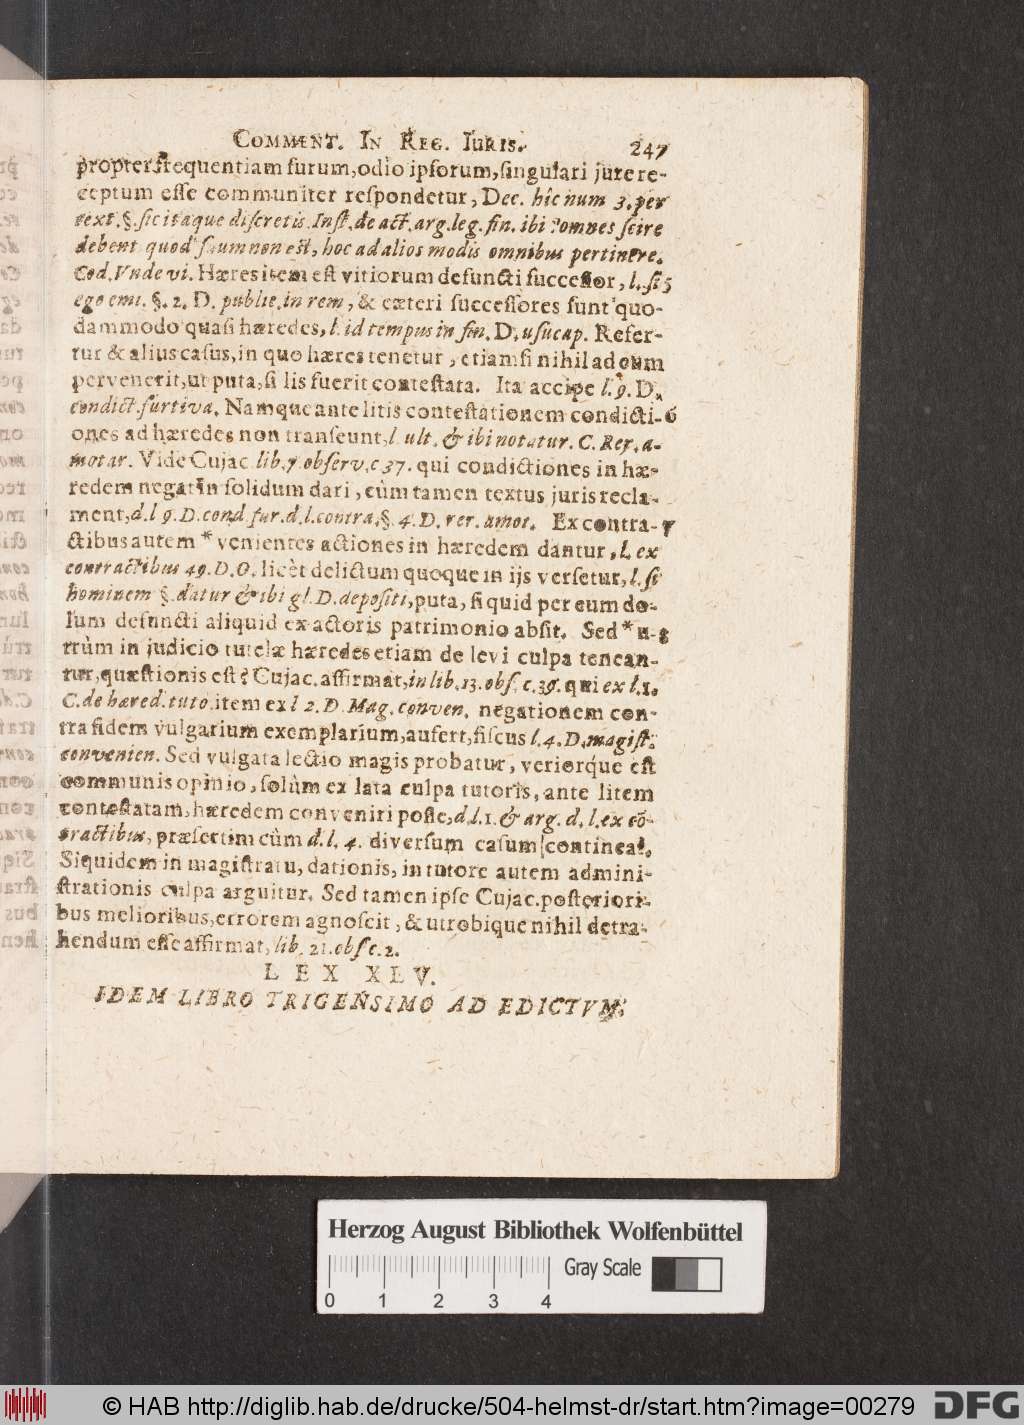 COMMENT. IN REG. IURIS. 247
propter frequentiam furum, odio ipsorum, singulari jure re-
ceptum esse communiter respondetur, Dec. hîc num 3. per
text. §. sic itaque discretis. Inst. de act. arg. leg. fin. ibi omnes scire
debent quod suum non est, hoc ad alios modis omnibus pertinere.
Cod. Vnde vi. Hæres item est vitiorum defuncti successor, l. si 5
ego emi. §. 2. D. public. in rem, & cæteri successores sunt quo-
dammodo quasi hæredes, l. id tempus in fin. D. usucap. Refer-
tur & alius casus, in quo hæres tenetur, etiamsi nihil ad eum
pervenerit, ut puta, si lis fuerit contestata. Ita accipe l. 9. D.
condict. furtiva. Namque ante litis contestationem condicti- 6
ones ad hæredes non transeunt, l ult. & ibi notatur. C. Rer. a-
motar. Vide Cujac lib. 7. observ. c 37. qui condictiones in hæ-
redem negat in solidum dari, cùm tamen textus juris recla-
ment, d. l 9. D. cond fur. d. l. contra. §. 4. D. rer. amot. Ex contra- 7
ctibus autem * venientes actiones in hæredem dantur, l. ex
contractibus 49. D. O. licèt delictum quoque in ijs versetur, l. si
hominem §. datur & ibi gl. D. depositi, puta, si quid per eum do-
lum defuncti aliquid ex actoris patrimonio absit. Sed * u- 8
trùm in judicio tutelæ hæredes etiam de levi culpa tenean-
tur, quæstionis est? Cujac. affirmat, in lib. 13. obs. c. 39. qui ex l. 1.
C. de hæred. tuto. item ex l 2. D. Mag. conven. negationem con-
tra fidem vulgarium exemplarium, aufert, fiscus l. 4. D. magist.
convenien. Sed vulgata lectio magis probatur, veriorq́ue est
communis opinio, solùm ex lata culpa tutoris, ante litem
contestatam, hæredem conveniri posse, d. l. 1. & arg. d. l. ex cō-
tractibus, præsertim cùm d. l. 4. diversum casum contineat.
Siquidem in magistratu, dationis, in tutore autem admini-
strationis culpa arguitur. Sed tamen ipse Cujac. posteriori-
bus melioribus, errorem agnoscit, & utrobique nihil detra-
hendum esse affirmat, lib. 21. obs c. 2.
LEX XLV.
IDEM LIBRO TRIGENSIMO AD EDICTVM.
Herzog August Bibliothek Wolfenbüttel
Gray Scale
0 1 2 3 4
© HAB http://diglib.hab.de/drucke/504-helmst-dr/start.htm?image=00279
DFG